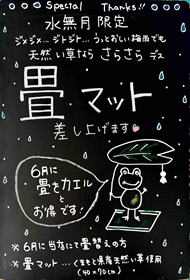 Special Thanks!!
水無月限定
ジメジメージトジト…うっとおしい梅雨でも
天然い草なら さらさら デス
畳マット
差し上げます
6月に
畳をカエルと
お得です!
※ 6月に当店にて畳替えの方
※ 畳マット…くまもと県産天然い草使用
(40×90cm)